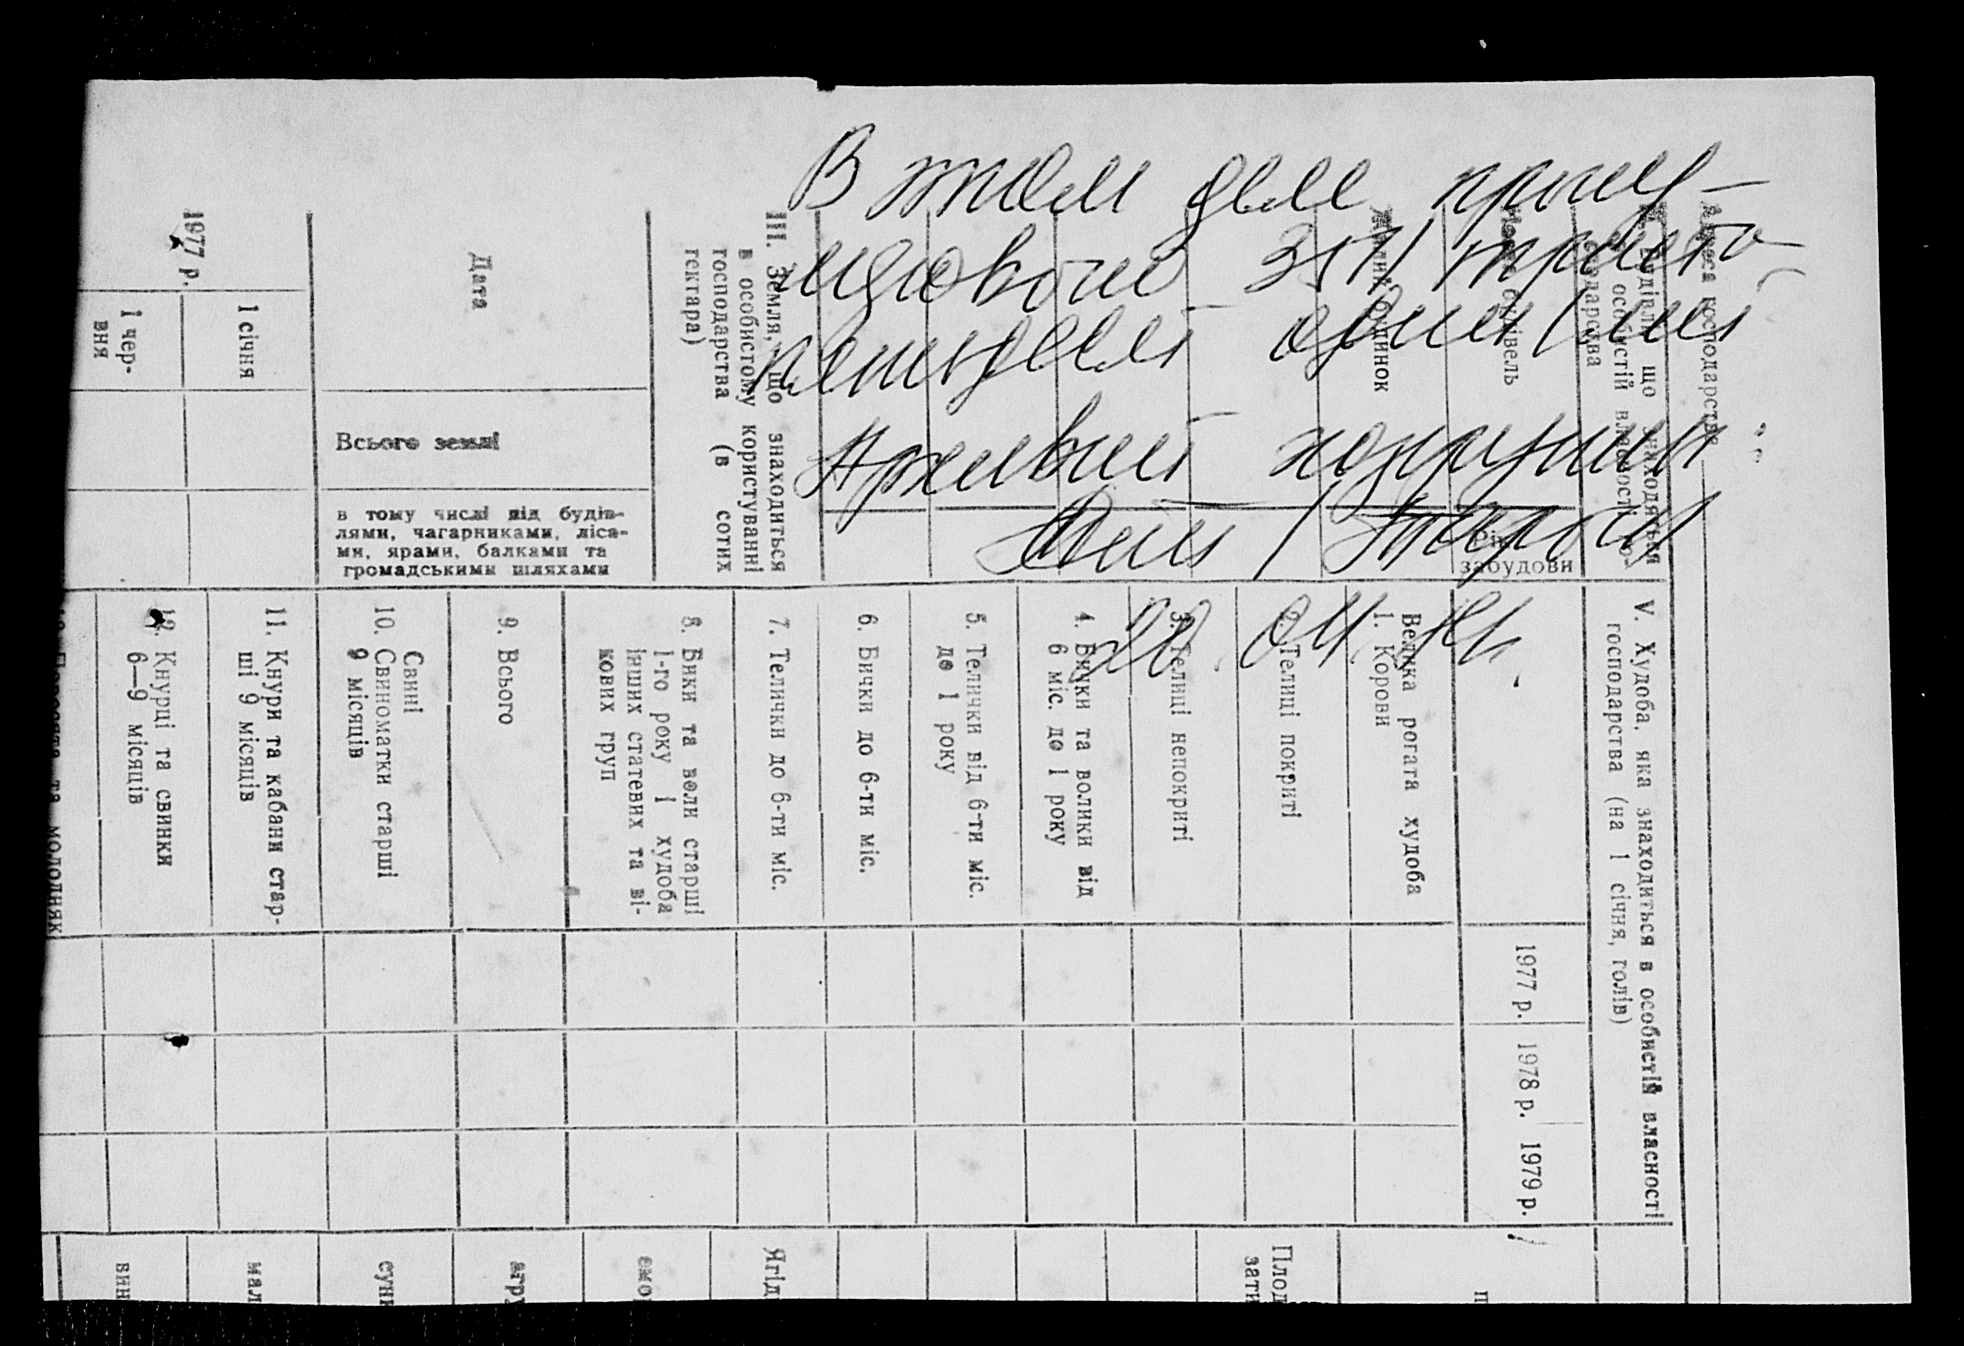 В этом деле прону-
мерован 351 /триста
пятьдесят один/ лист
Архивный
1977 р.
1 січня
1 чер-
вня
Дата
Всього землі
в тому числі під будів-
лями, чагарниками, ліса-
ми, ярами, балками та
громадськими шляхами
III. Земля, що знаходиться
в особистому користуванні
господарства (в сотих
гектара)
Адреса господарства
будівлі, що знаходяться
в особистій власності
господарства
будівель
будинок
Рік
забудови
V. Худоба, яка знаходиться в особистій власності
господарства (на 1 січня, голів)
1977 р. 1978 р. 1979 р.
Велика рогата худоба
1. Корови
2. Телиці покриті
3. Телиці непокриті
4. Бички та волики від
6 міс. до 1 року
5. Телички від 6-ти міс.
до 1 року
6. Бички до 6-ти міс.
7. Телички до 6-ти міс.
8. Бики та воли старші
1-го року і худоба
інших статевих та ві-
кових груп
9. Всього
Свині
10. Свиноматки старші
9 місяців
11. Кнури та кабани стар-
ші 9 місяців
12. Кнурці та свинки
6—9 місяців
та молодняк
Плод
зати
Ягід
смо
агру
суни
мал
вин